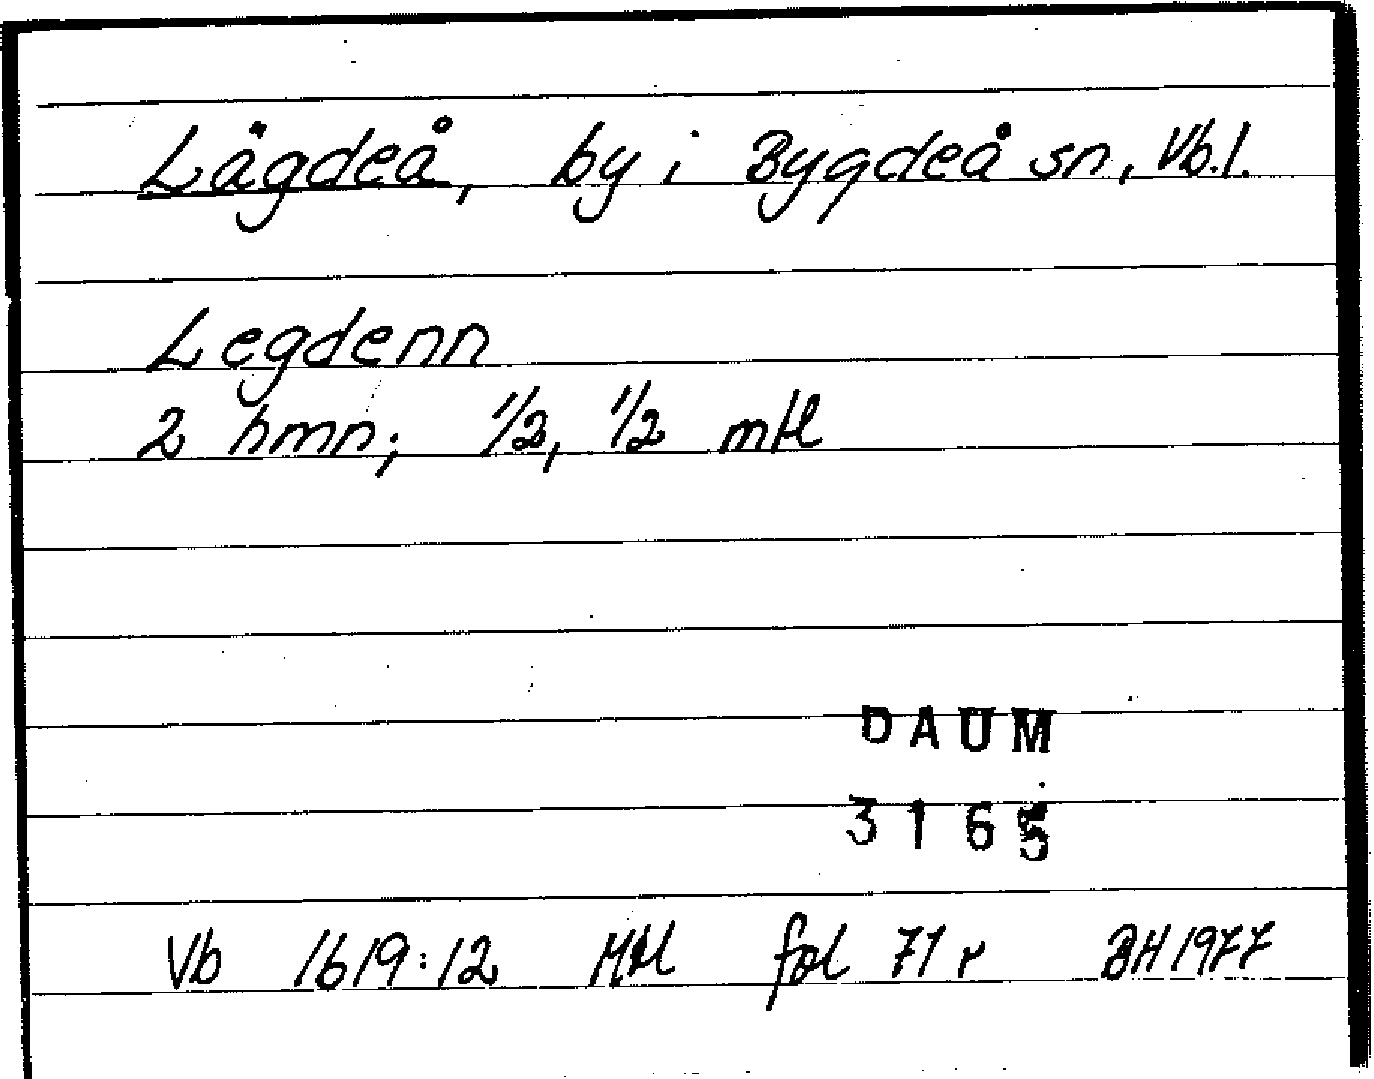 Lägdeå, by i Bygdeå sn, Vb.l.
Legdenn
2 hmn; 1/2, 1/2 mtl
DAUM
3165
Vb 1619:12 Mtl fol 71 r BH 1977